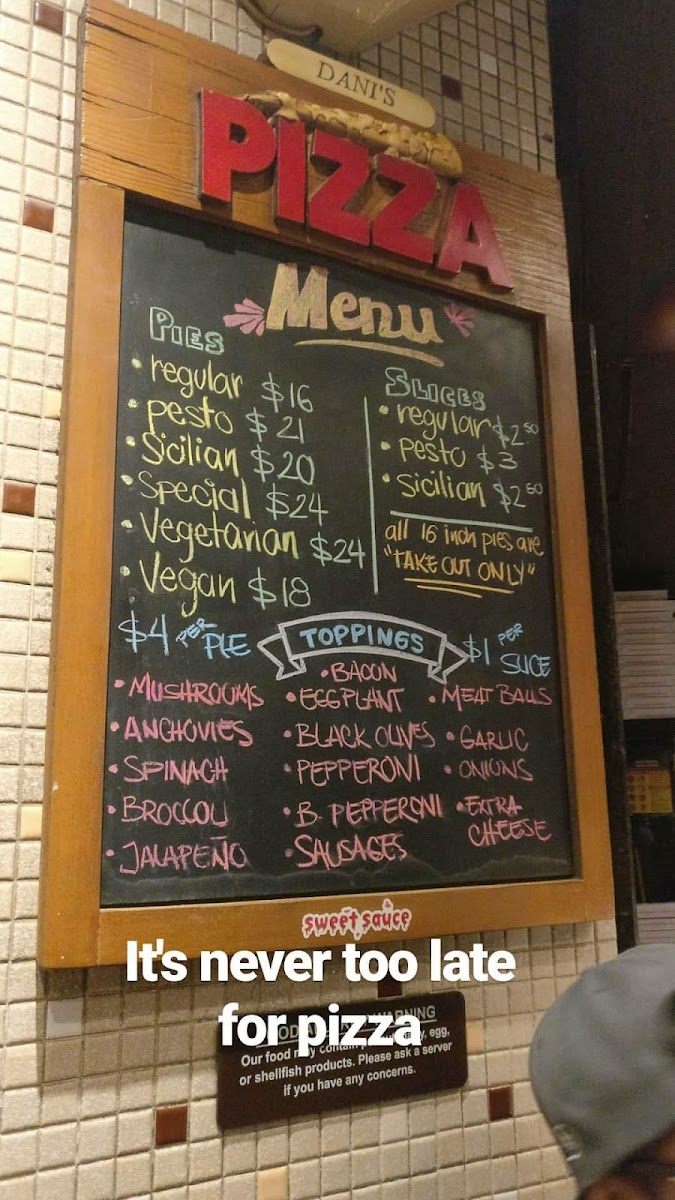 DANI'S
PIZZA
Menu
PIES
• regular $16
• pesto $21
• Sicilian $20
• Special $24
• Vegetarian $24
• Vegan $18
SLICES
• regular $2.50
• pesto $3
• sicilian $2 50
all 16 inch pies are
"TAKE OUT ONLY"
$4 PER PIE
TOPPINGS
$1 PER SLICE
• MUSHROOMS
• ANCHOVIES
• SPINACH
• BROCCOLI
• JALAPEÑO
• BACON
• EGGPLANT
• BLACK OLIVES
• PEPPERONI
• B. PEPPERONI
• SAUSAGES
• MEAT BALLS
• GARLIC
• ONIONS
• EXTRA
CHEESE
sweet sauce
It's never too late
for pizza
WARNING
Our food may contain egg,
or shellfish products. Please ask a server
if you have any concerns.